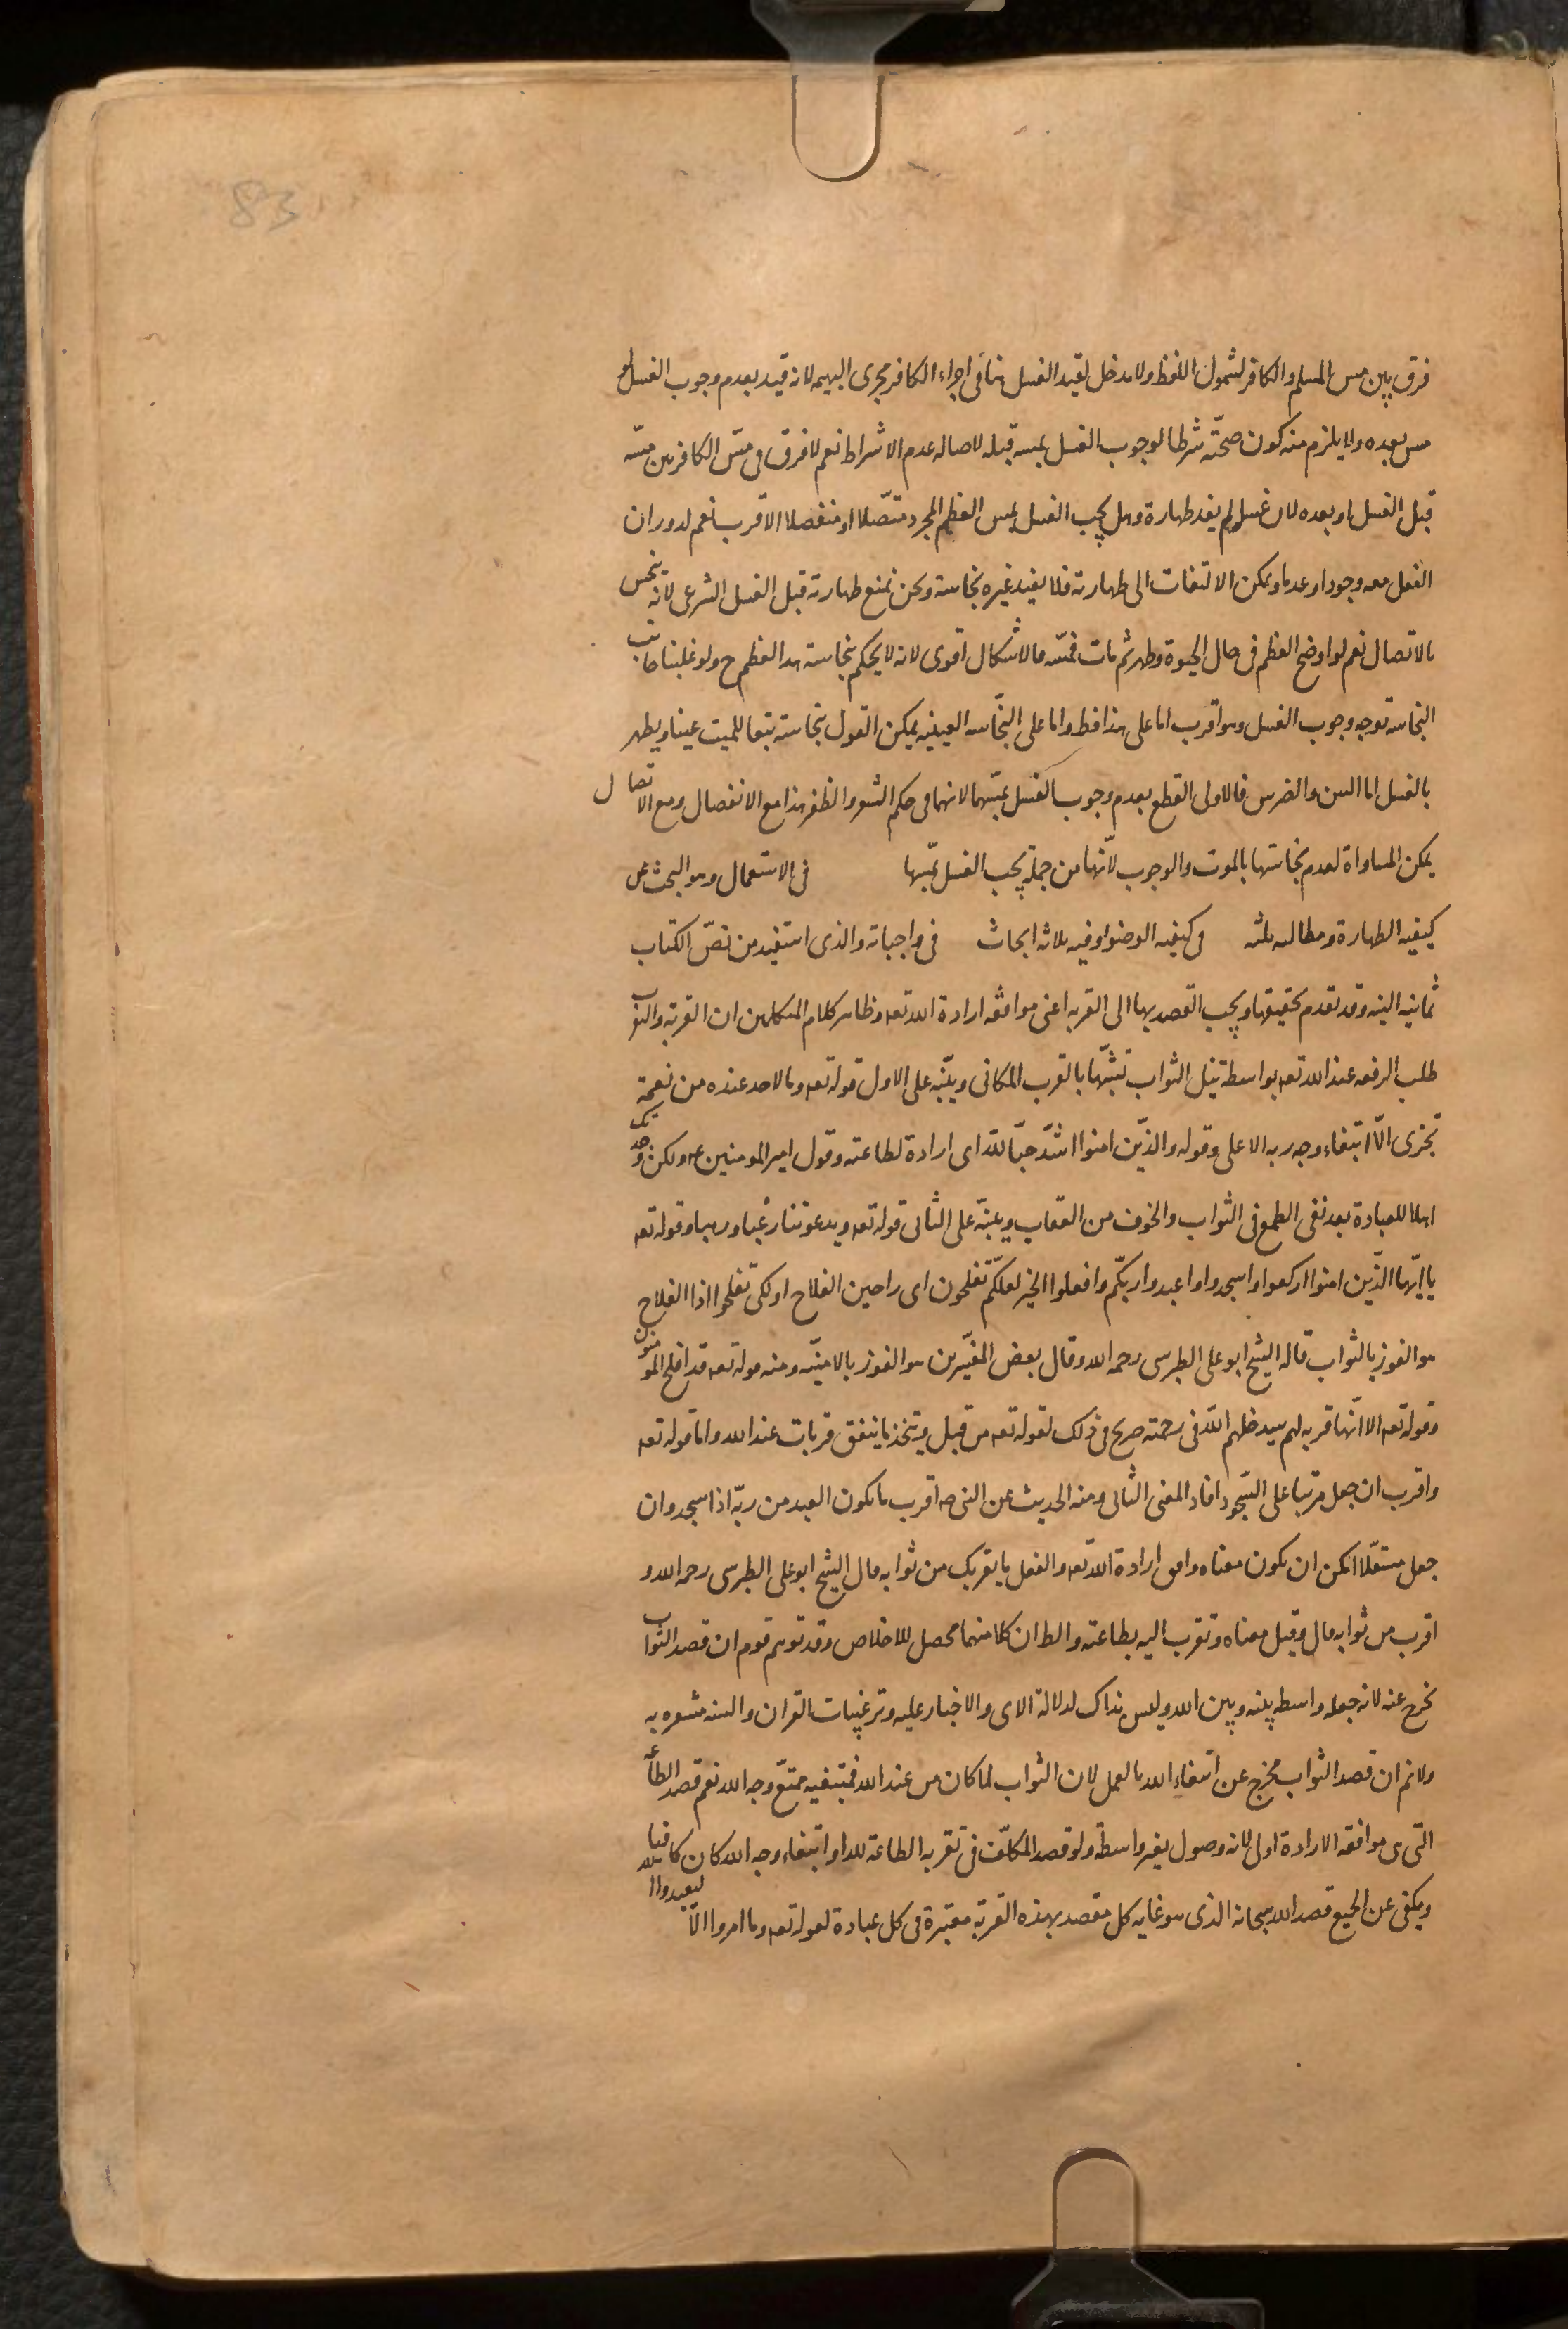 83
فرق بين مس المسلم والكافر لشمول اللفظ ولا مدخل لقيد الغسل هنا في اجراء الكافر مجرى البهيمه لانه قيد بعدم وجوب الغسل لو
مس بعده ولا يلزم منه كون صحّته شرطا لوجوب الغسل بمسه قبله لاصاله عدم الاشراط نعم لا فرق فى مسّ الكافر بين مسّه
قبل الغسل او بعده لان غسله لم يفد طهارة وهل يجب الغسل بمس العظم المجرد متصّلا او منفصلا الاقرب نعم لدوران
الغسل معه وجودا وعدما ويمكن الالتفات الى طهارته فلا يفيد غيره نجاسة ونحن نمنع طهارته قبل الغسل الشرعى لانّه ينجس
بالاتصال نعم لو اوضح العظم فى حال الحيوة وطهر ثم مات فمسّه فالاشكال اقوى لانه لا يحكم بنجاسة هذا العظم ح ولو غلبنا جانب
النجاسة توجه وجوب الغسل وهو اقرب اما على هذا فظ واما على النجّاسه العينيه يمكن القول بنجاسته تبعا للميت عينا ويطهر
بالغسل اما السن والضرس فالاولى القطع بعدم وجوب الغسل بمسّهما لانهما فى حكم الشعر والظفر هذا مع الانفصال ومع الاتصال
يمكن المساواة لعدم نجاستها بالموت والوجوب لانّها من جملة يجب الغسل بمسّها فى الاستعمال وهو البحث عن
كيفيه الطهارة ومطالبه ثلثه فى كيفيه الوضوا وفيه ثلاثه ابحاث فى واجباته والذى استفيد من نصّ الكتاب
ثمانيه النيه وقد تقدم تحقيقها ويجب القصد بها الى القربه اعنى موافقه ارادة الله تعه وظاهر كلام المتكلمين ان القربة والثواب
طلب الرفعه عند الله تعه بواسطة نيل الثواب تشبّها بالقرب المكانى وينبّه على الاول قوله تعه وما لاحد عنده من نعمة
تجزى الّا ابتغاء وجه ربه الاعلى وقوله والذّين امنوا اشدّ حبّا لله اى ارادة لطاعته وقول امير المومنين عه ولكن وجدتك
اهلا للعبادة بعد نفى الطمع فى الثواب والخوف من العقاب وينبّه على الثانى قوله تعه ويدعوننا رغبا ورهبا وقوله تعه
يا ايّها الذّين امنوا اركعوا واسجدوا واعبدوا ربّكم وافعلوا الخير لعلكّم تفلحون اى راجين الفلاح او لكى تفلحوا اذا الفلاح
هو الفوز بالثواب قاله الشيخ ابو على الطبرسى رحمه الله وقال بعض المفسّرين هو الفوز بالامنيّه ومنه قوله تعه قد افلح المومنون
وقوله تعه الا انّها قربه لهم سيدخلهم الله فى رحمته صريح فى ذلك لقوله تعه من قبل ويتخذ ما ينفق قربات عند الله واما قوله تعه
واقرب ان جعل مرتبا على السّجود افاد المعنى الثانى ومنه الحديث عن النبى صه اقرب ما يكون العبد من ربّه اذا سجد وان
جعل مستقلّا امكن ان يكون معناه وافق ارادة الله تعه والفعل ما يقربك من ثوابه قال الشيخ ابو على الطبرسى رحمه الله و
اقرب من ثوابه قال وقيل معناه وتقرب اليه بطاعته والظ ان كلا منهما محصل للاخلاص وقد توهم قوم ان قصد الثواب
يخرج عنه لانه جعله واسطه بينه وبين الله وليس بذاك لدلالة الاى والاخبار عليه وترغيبات القران والسنه مشعره به
ولا نم ان قصد الثواب مخرج عن ابتغاء الله بالعمل لان الثواب لما كان من عند الله فمبتغيه مبتغ وجه الله نعم قصد الطاعه
التّى هى موافقه الارادة اولى لانه وصول بغير واسطة ولو قصد المكلّف فى تقربه الطاعة لله او ابتغاء وجه الله كان كافيا
ويكفى عن الجيع قصد الله سبحانه الذى هو غايه كل مقصد بهذه القربة معتبرة فى كل عبادة لقوله تعه وما امروا الّا ليعبدوا الله